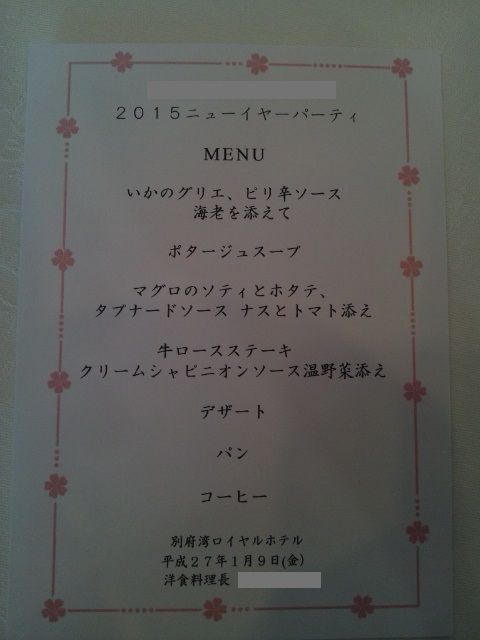 2015ニューイヤーパーティ
MENU
いかのグリエ、ピリ辛ソース
海老を添えて
ポタージュスープ
マグロのソティとホタテ、
タプナードソース ナスとトマト添え
牛ロースステーキ
クリームシャピニオンソース温野菜添え
デザート
パン
コーヒー
別府湾ロイヤルホテル
平成27年1月9日(金)
洋食料理長